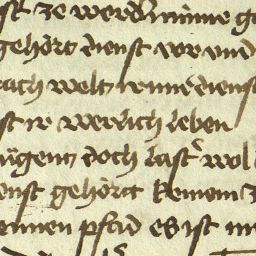 st ze werden minne ge
gehört dienst vor vnd
nach welt vnnd dienst
st ir werlich leben
mügenn doch last wol
enst gehört keinem z
einen pfad es ist in